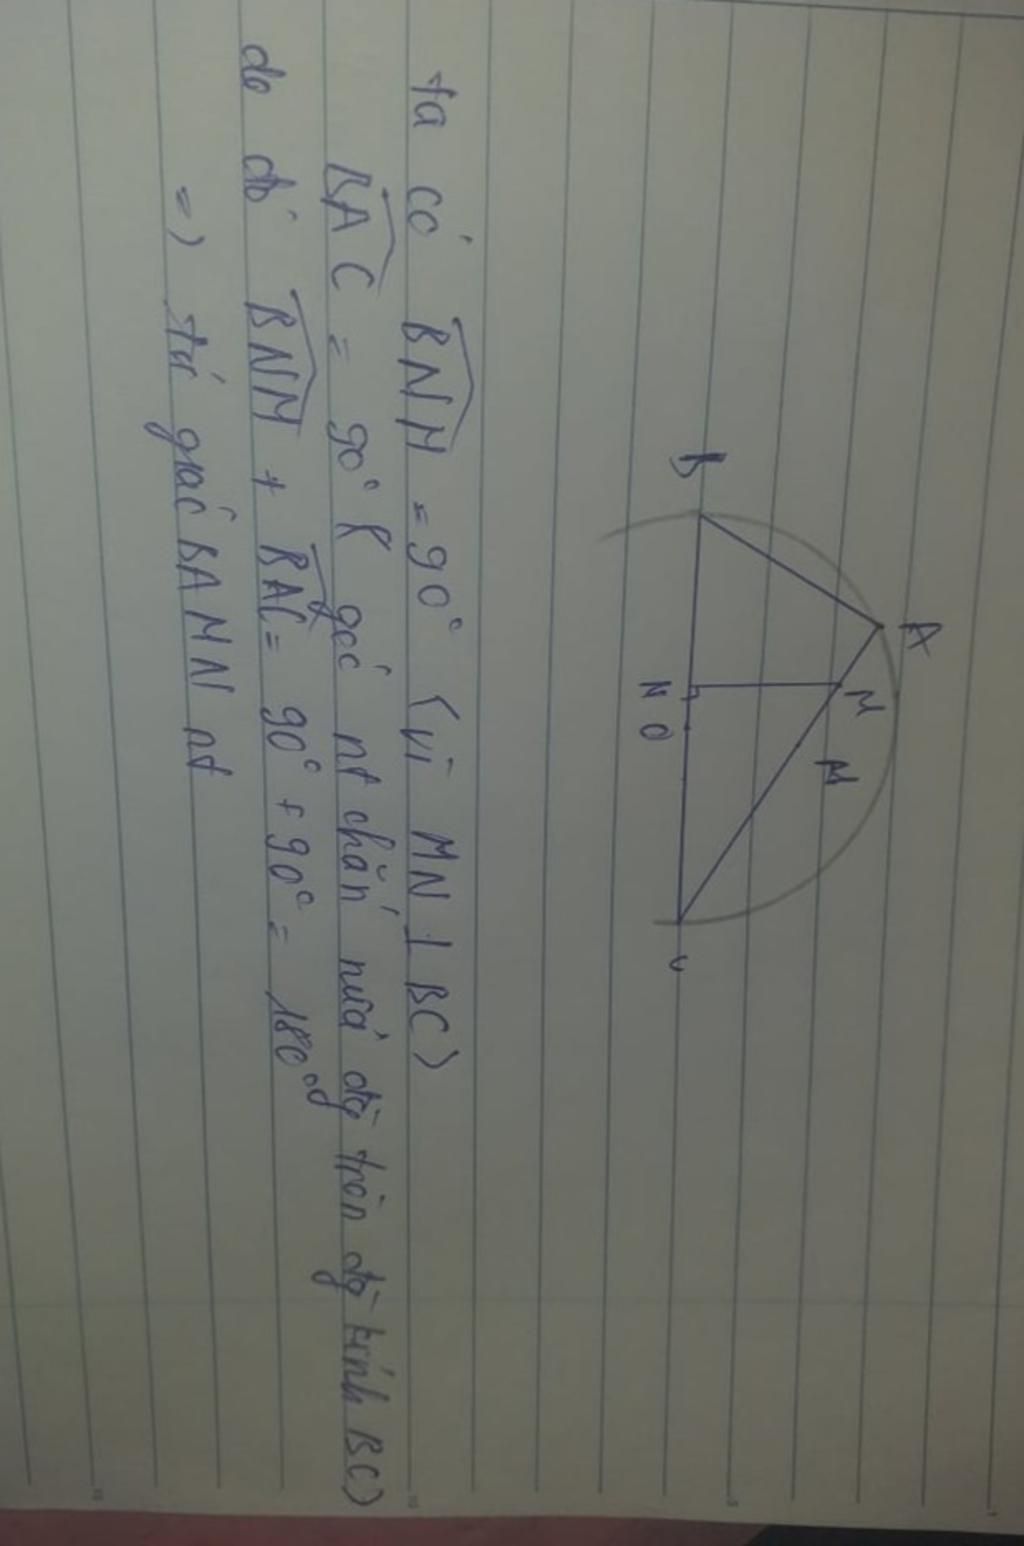 A
M
M
B
N
O
C
ta có BNM = 90° (vì MN ⊥ BC)
BAC = 90° ( góc nt chắn nửa đg tròn đg kính BC)
do đó BNM + BAC = 90° + 90° = 180°
=) tứ giác BAMN nt